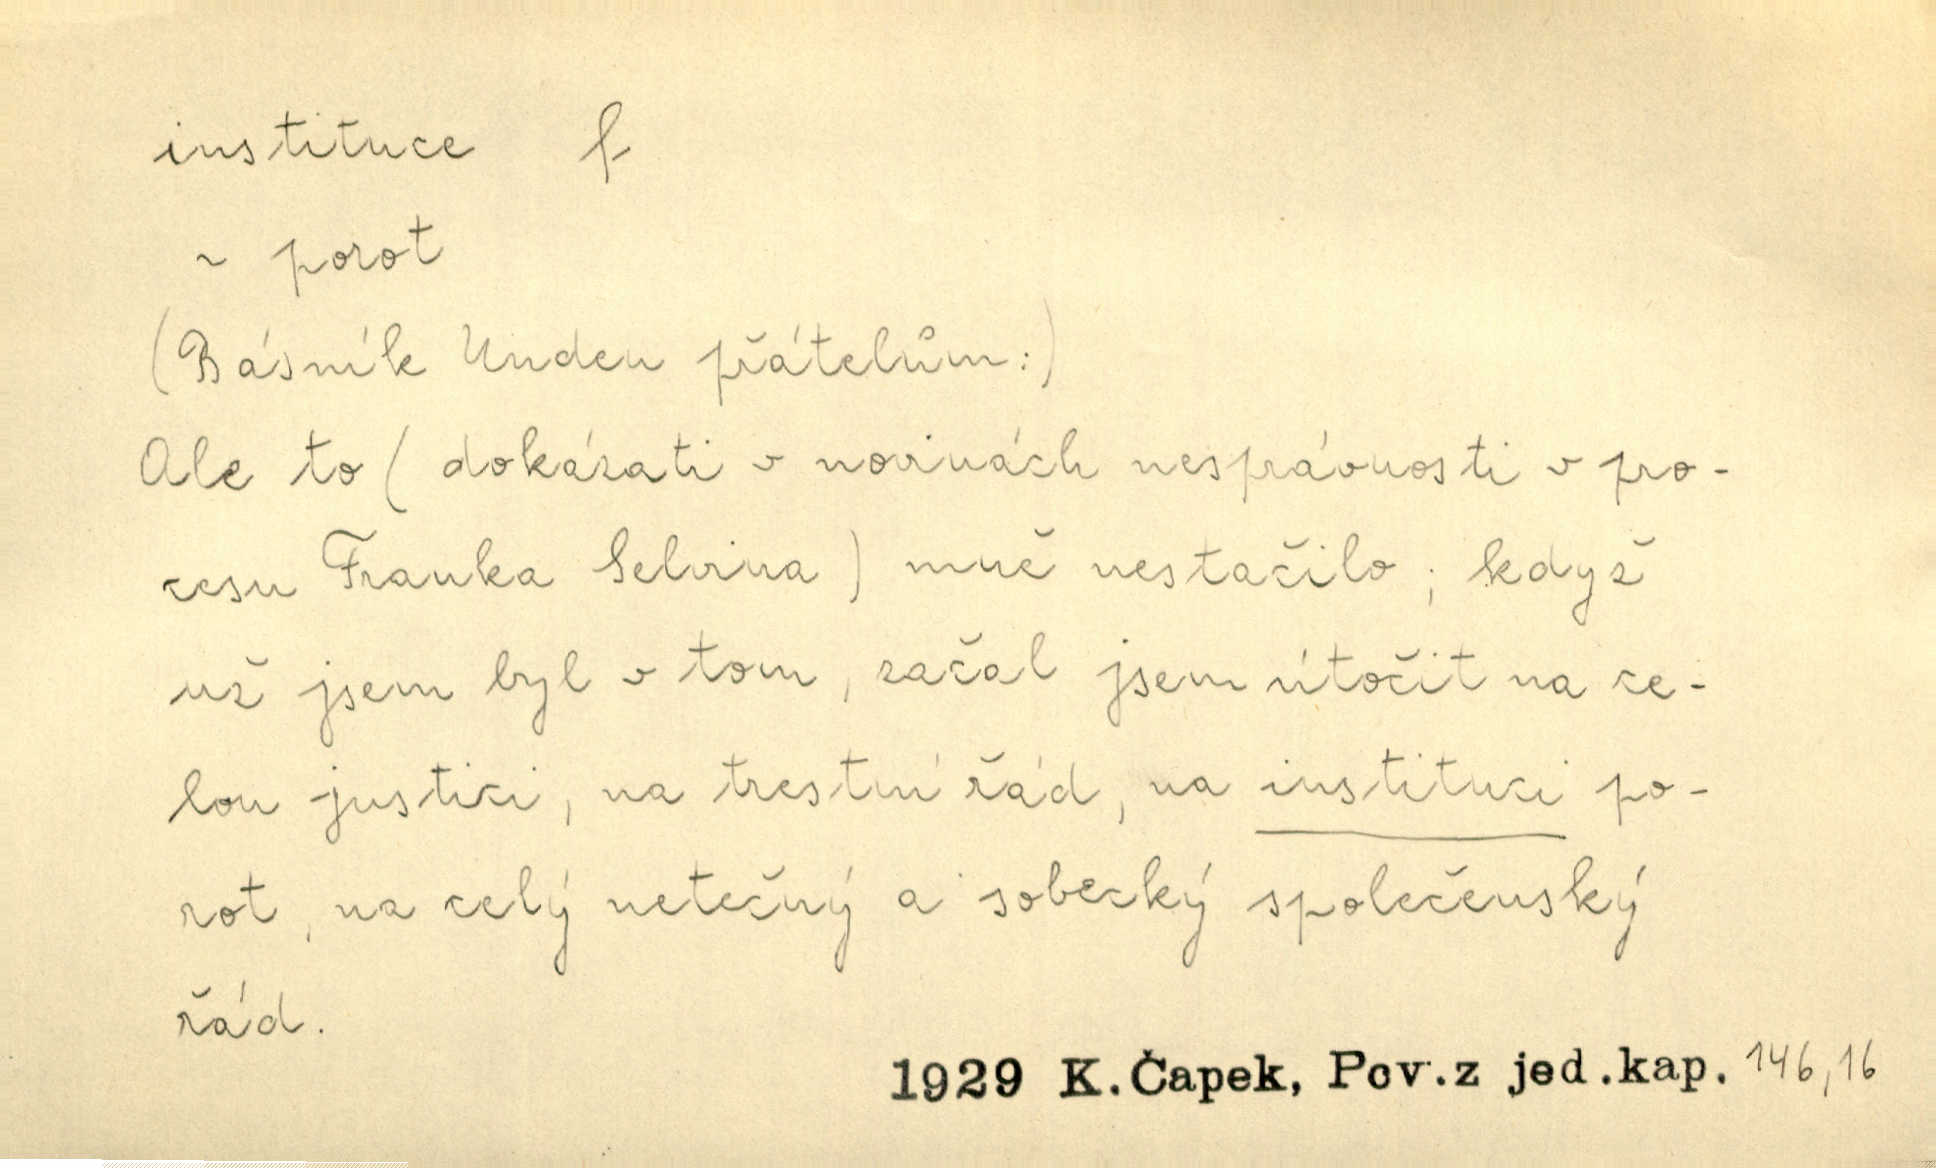 instituce f
~ porot
(Básník Unden přátelům:)
Ale to (dokázati v novinách nesprávnosti v pro-
cesu Franka Selvina) mně nestačilo; když
už jsem byl v tom, začal jsem útočit na ce-
lou justici, na trestní řád, na instituci po-
rot, na celý netečný a sobecký společenský
řád.
1929 K.Čapek, Pov.z jed.kap. 146,16